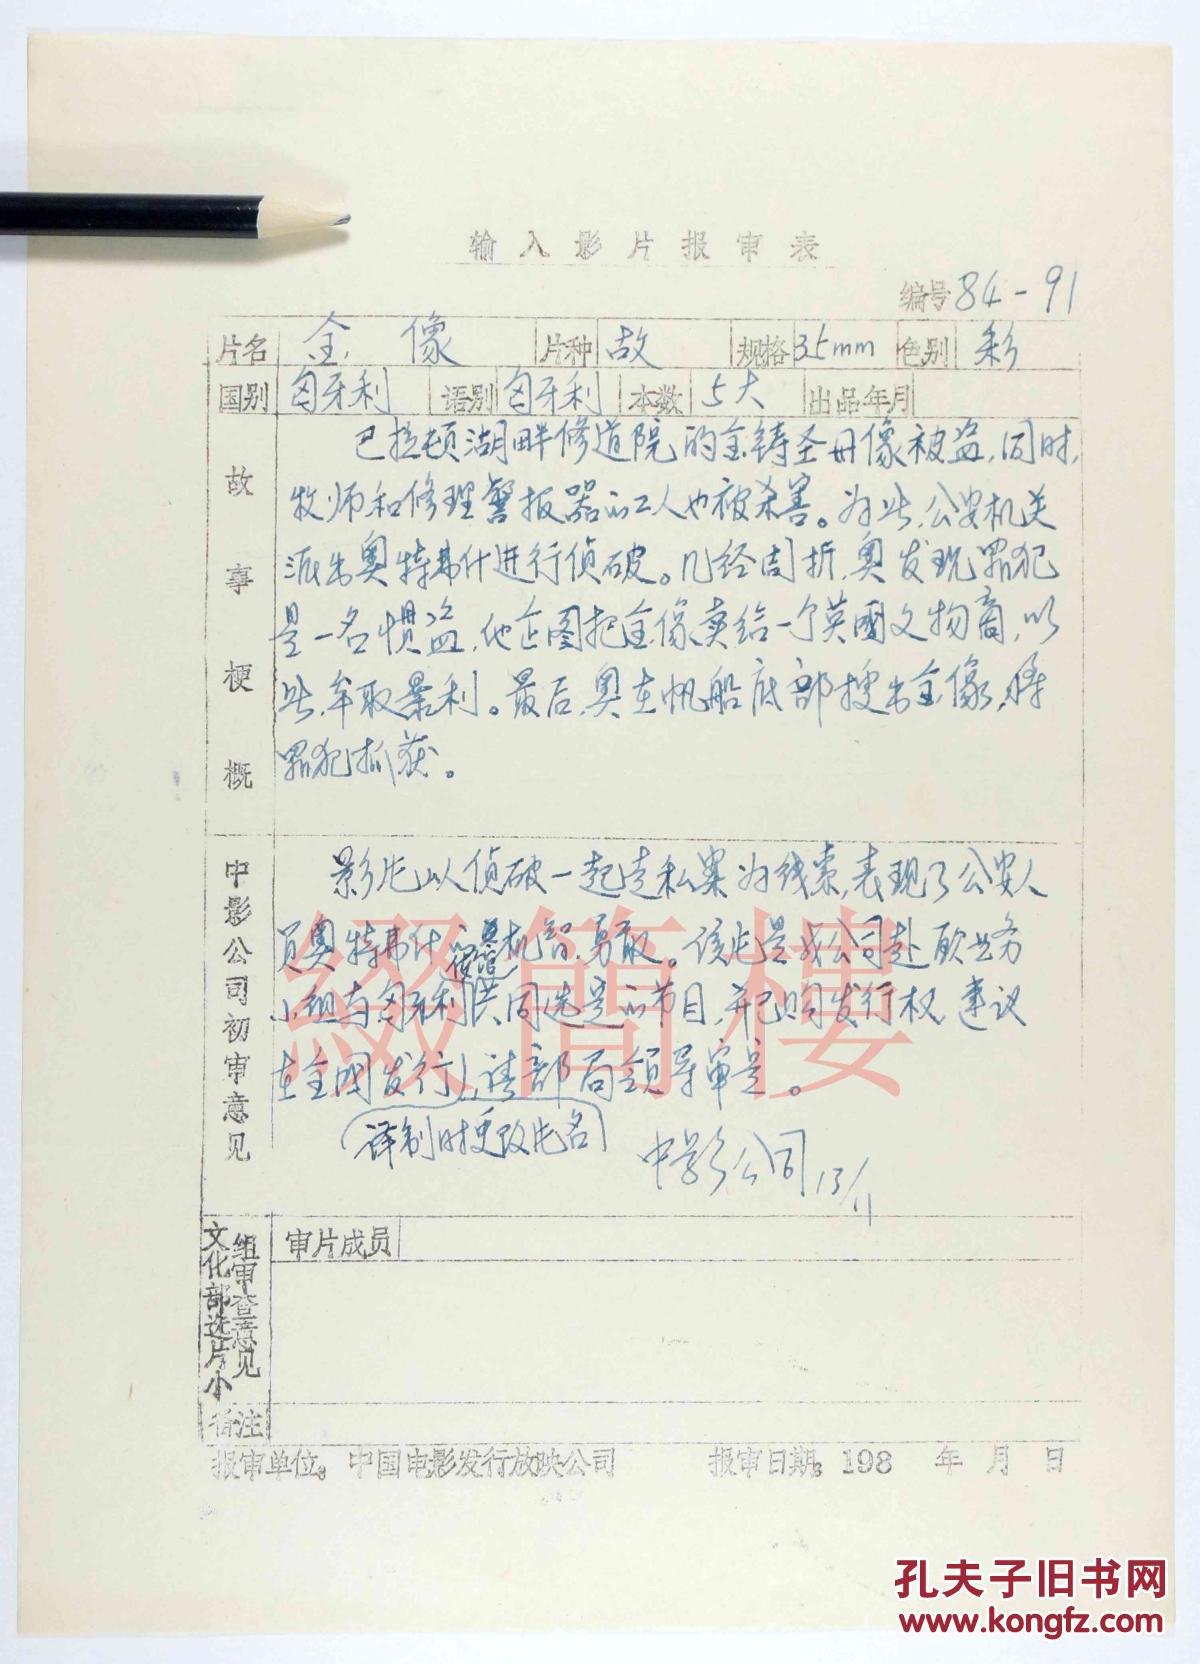 输入影片报审表
编号 84-91
片名 金像 片种 故 规格 35mm 色别 彩
国别 匈牙利 语别 匈牙利 本数 5大 出品年月
故事梗概
巴拉顿湖畔修道院的金铸圣母像被盗,同时,
牧师和修理警报器的工人也被杀害。为此,公安机关
派出奥特弗什进行侦破。几经周折,奥发现罪犯
是一名惯盗,他企图把金像卖给一个英国文物商,以
此牟取暴利。最后,奥在帆船底部搜出金像,将
罪犯抓获。
中影公司初审意见
影片以侦破一起走私案为线索,表现了公安人
员奥特弗什的机智、勇敢。该片是我公司赴欧业务
小组与匈牙利洪同选号的节目,并已购发行权,建议
在全国发行,请部局领导审定。
(译制时更改片名)
中影公司 13/11
文化部选片小组审查意见
审片成员
备注
报审单位。中国电影发行放映公司 报审日期。198 年 月 日
綴簡樓
孔夫子旧书网
www.kongfz.com